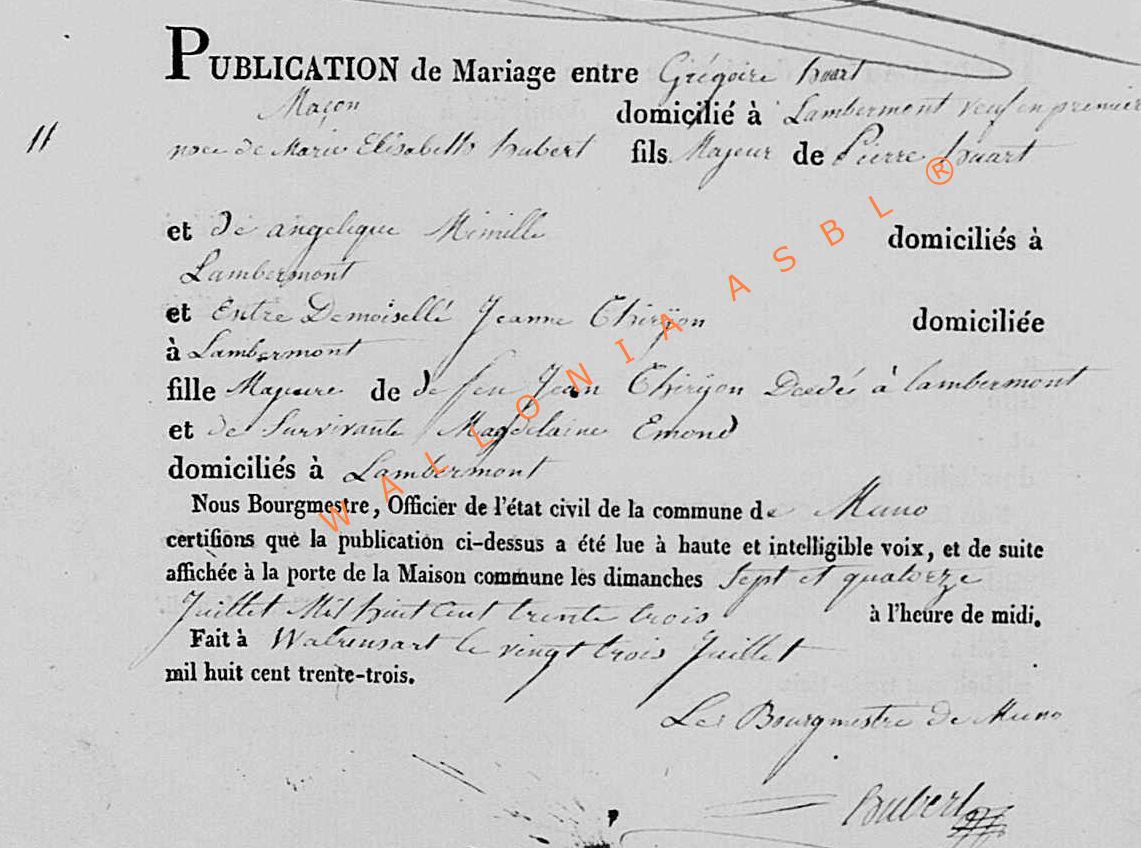 PUBLICATION de Mariage entre Grégoire huart
Maçon domicilié à Lambermont veuf en premier
noce de Marie Elisabeth hubert fils Majeur de Pierre huart
11
et de angelique
domiciliés à
Lambermont
et Entre Demoiselle Jeanne Thiryon domiciliée
à Lambermont
fille Majeure de de feu Jean Thiryon à lambermont
et de Survivante Magdelaine Emond
domiciliés à Lambermont
Nous Bourgmestre, Officier de l'état civil de la commune de Muno
certifions que la publication ci-dessus a été lue à haute et intelligible voix, et de suite
affichée à la porte de la Maison commune les dimanches Sept et quatorze
Juillet Mil huit Cent trente trois à l'heure de midi.
Fait à le vingt trois Juillet
mil huit cent trente-trois.
Le Bourgmestre de Muno
hubert
WALLONIA ASBL ®